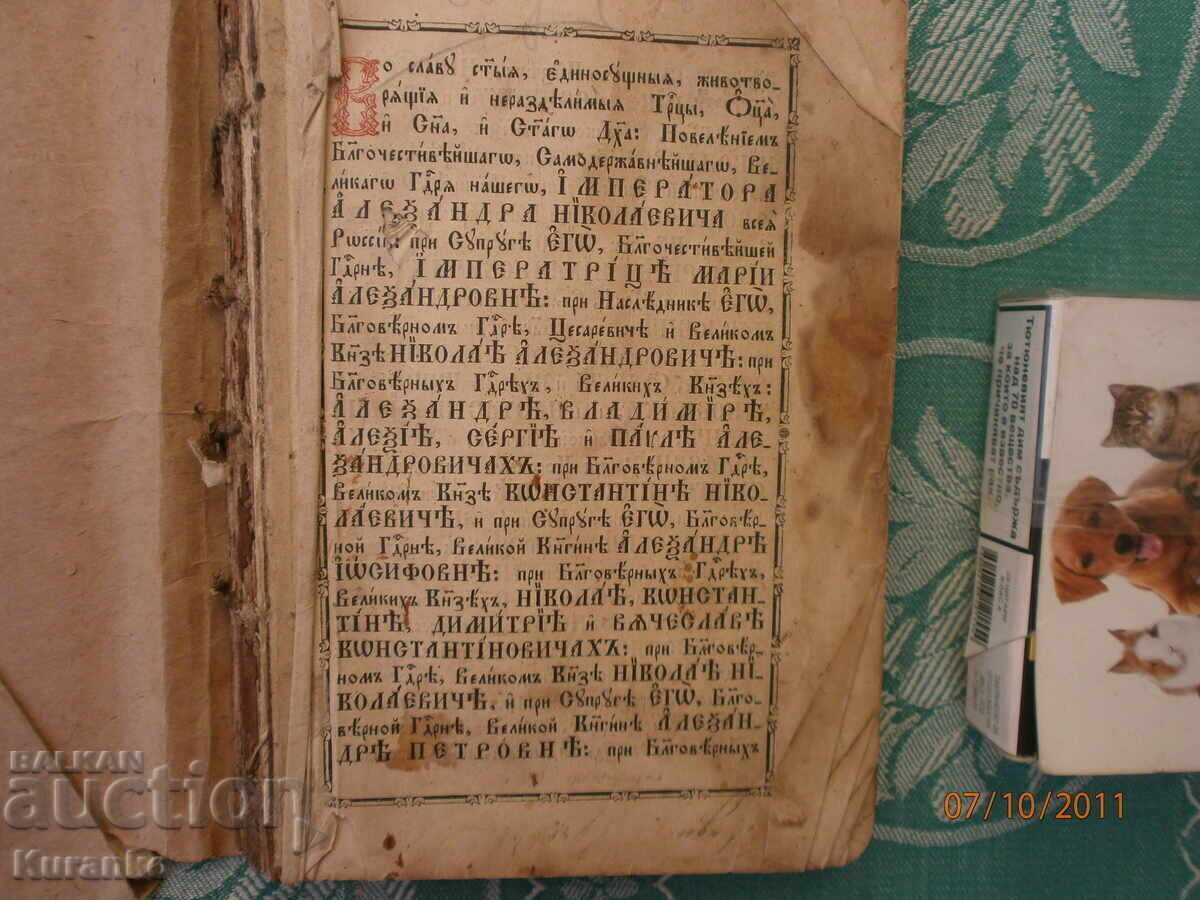 Во славу ст҃ы́ѧ, є҆диносу́щныѧ, животво-
рѧ́щїѧ и҆ нераздѣ́лимыѧ Трⷪ҇цы, Ѻ҆ц҃а̀,
и҆ Сн҃а, и҆ Ст҃а́гѡ Дх҃а: Повелѣ́нїемъ
Бл҃гочести́вѣйшагѡ, Самодержа́внѣйшагѡ, Ве-
ли́кагѡ Гдⷭ҇рѧ на́шегѡ, І҆МПЕРА́ТОРА
А҆ЛЕѮА́НДРА НЇКОЛА́ЕВИЧА всеѧ̀
Рѡссі́и: при Сꙋпрꙋ́гѣ Є҆ГѠ̀, Бл҃гочести́вѣйшей
Гдⷭ҇рнѣ, І҆МПЕРАТРІ́ЦѢ МАРІ́И
А҆ЛЕѮА́НДРОВНѢ: при Наслѣ́дникѣ Є҆ГѠ̀,
Бл҃говѣ́рномъ Гдⷭ҇рѣ, Цесаре́вичѣ и҆ Вели́комъ
Кн҃зѣ НЇКОЛА́Ѣ А҆ЛЕѮА́НДРОВИЧѢ: при
Бл҃говѣ́рныхъ Гдⷭ҇рѣхъ, Вели́кихъ Кн҃зѣхъ:
А҆ЛЕѮА́НДРѢ, ВЛАДИ́МІРѢ,
А҆ЛЕѮІ́Ѣ, СЕ́РГІѢ и҆ ПА́ѴЛѢ А҆ЛЕ-
ѮА́НДРОВИЧАХЪ: при Бл҃говѣ́рномъ Гдⷭ҇рѣ,
Вели́комъ Кн҃зѣ КѠНСТАНТІ́НѢ НЇКО-
ЛА́ЕВИЧѢ, и҆ при Сꙋпрꙋ́гѣ Є҆ГѠ̀, Бл҃говѣ́р-
ной Гдⷭ҇рнѣ, Вели́кой Кнѧги́нѣ А҆ЛЕѮА́НДРѢ
І҆Ѡ́СИФОВНѢ: при Бл҃говѣ́рныхъ Гдⷭ҇рѣхъ,
Вели́кихъ Кн҃зѣхъ, НЇКОЛА́Ѣ, КѠНСТАН-
ТІ́НѢ, ДИМИ́ТРІѢ и҆ ВѦЧЕСЛА́ВѢ
КѠНСТАНТІ́НОВИЧАХЪ: при Бл҃говѣ́р-
номъ Гдⷭ҇рѣ, Вели́комъ Кн҃зѣ НЇКОЛА́Ѣ НЇ-
КОЛА́ЕВИЧѢ, и҆ при Сꙋпрꙋ́гѣ Є҆ГѠ̀, Бл҃го-
вѣ́рной Гдⷭ҇рнѣ, Вели́кой Кнѧги́нѣ А҆ЛЕѮА́Н-
ДРѢ ПЕТРО́ВНѢ: при Бл҃говѣ́рныхъ
Тютюневият дим съдържа
над 70 вещества,
за които е известно,
че причиняват рак.
BALKAN
auction
Kuranko
07/10/2011